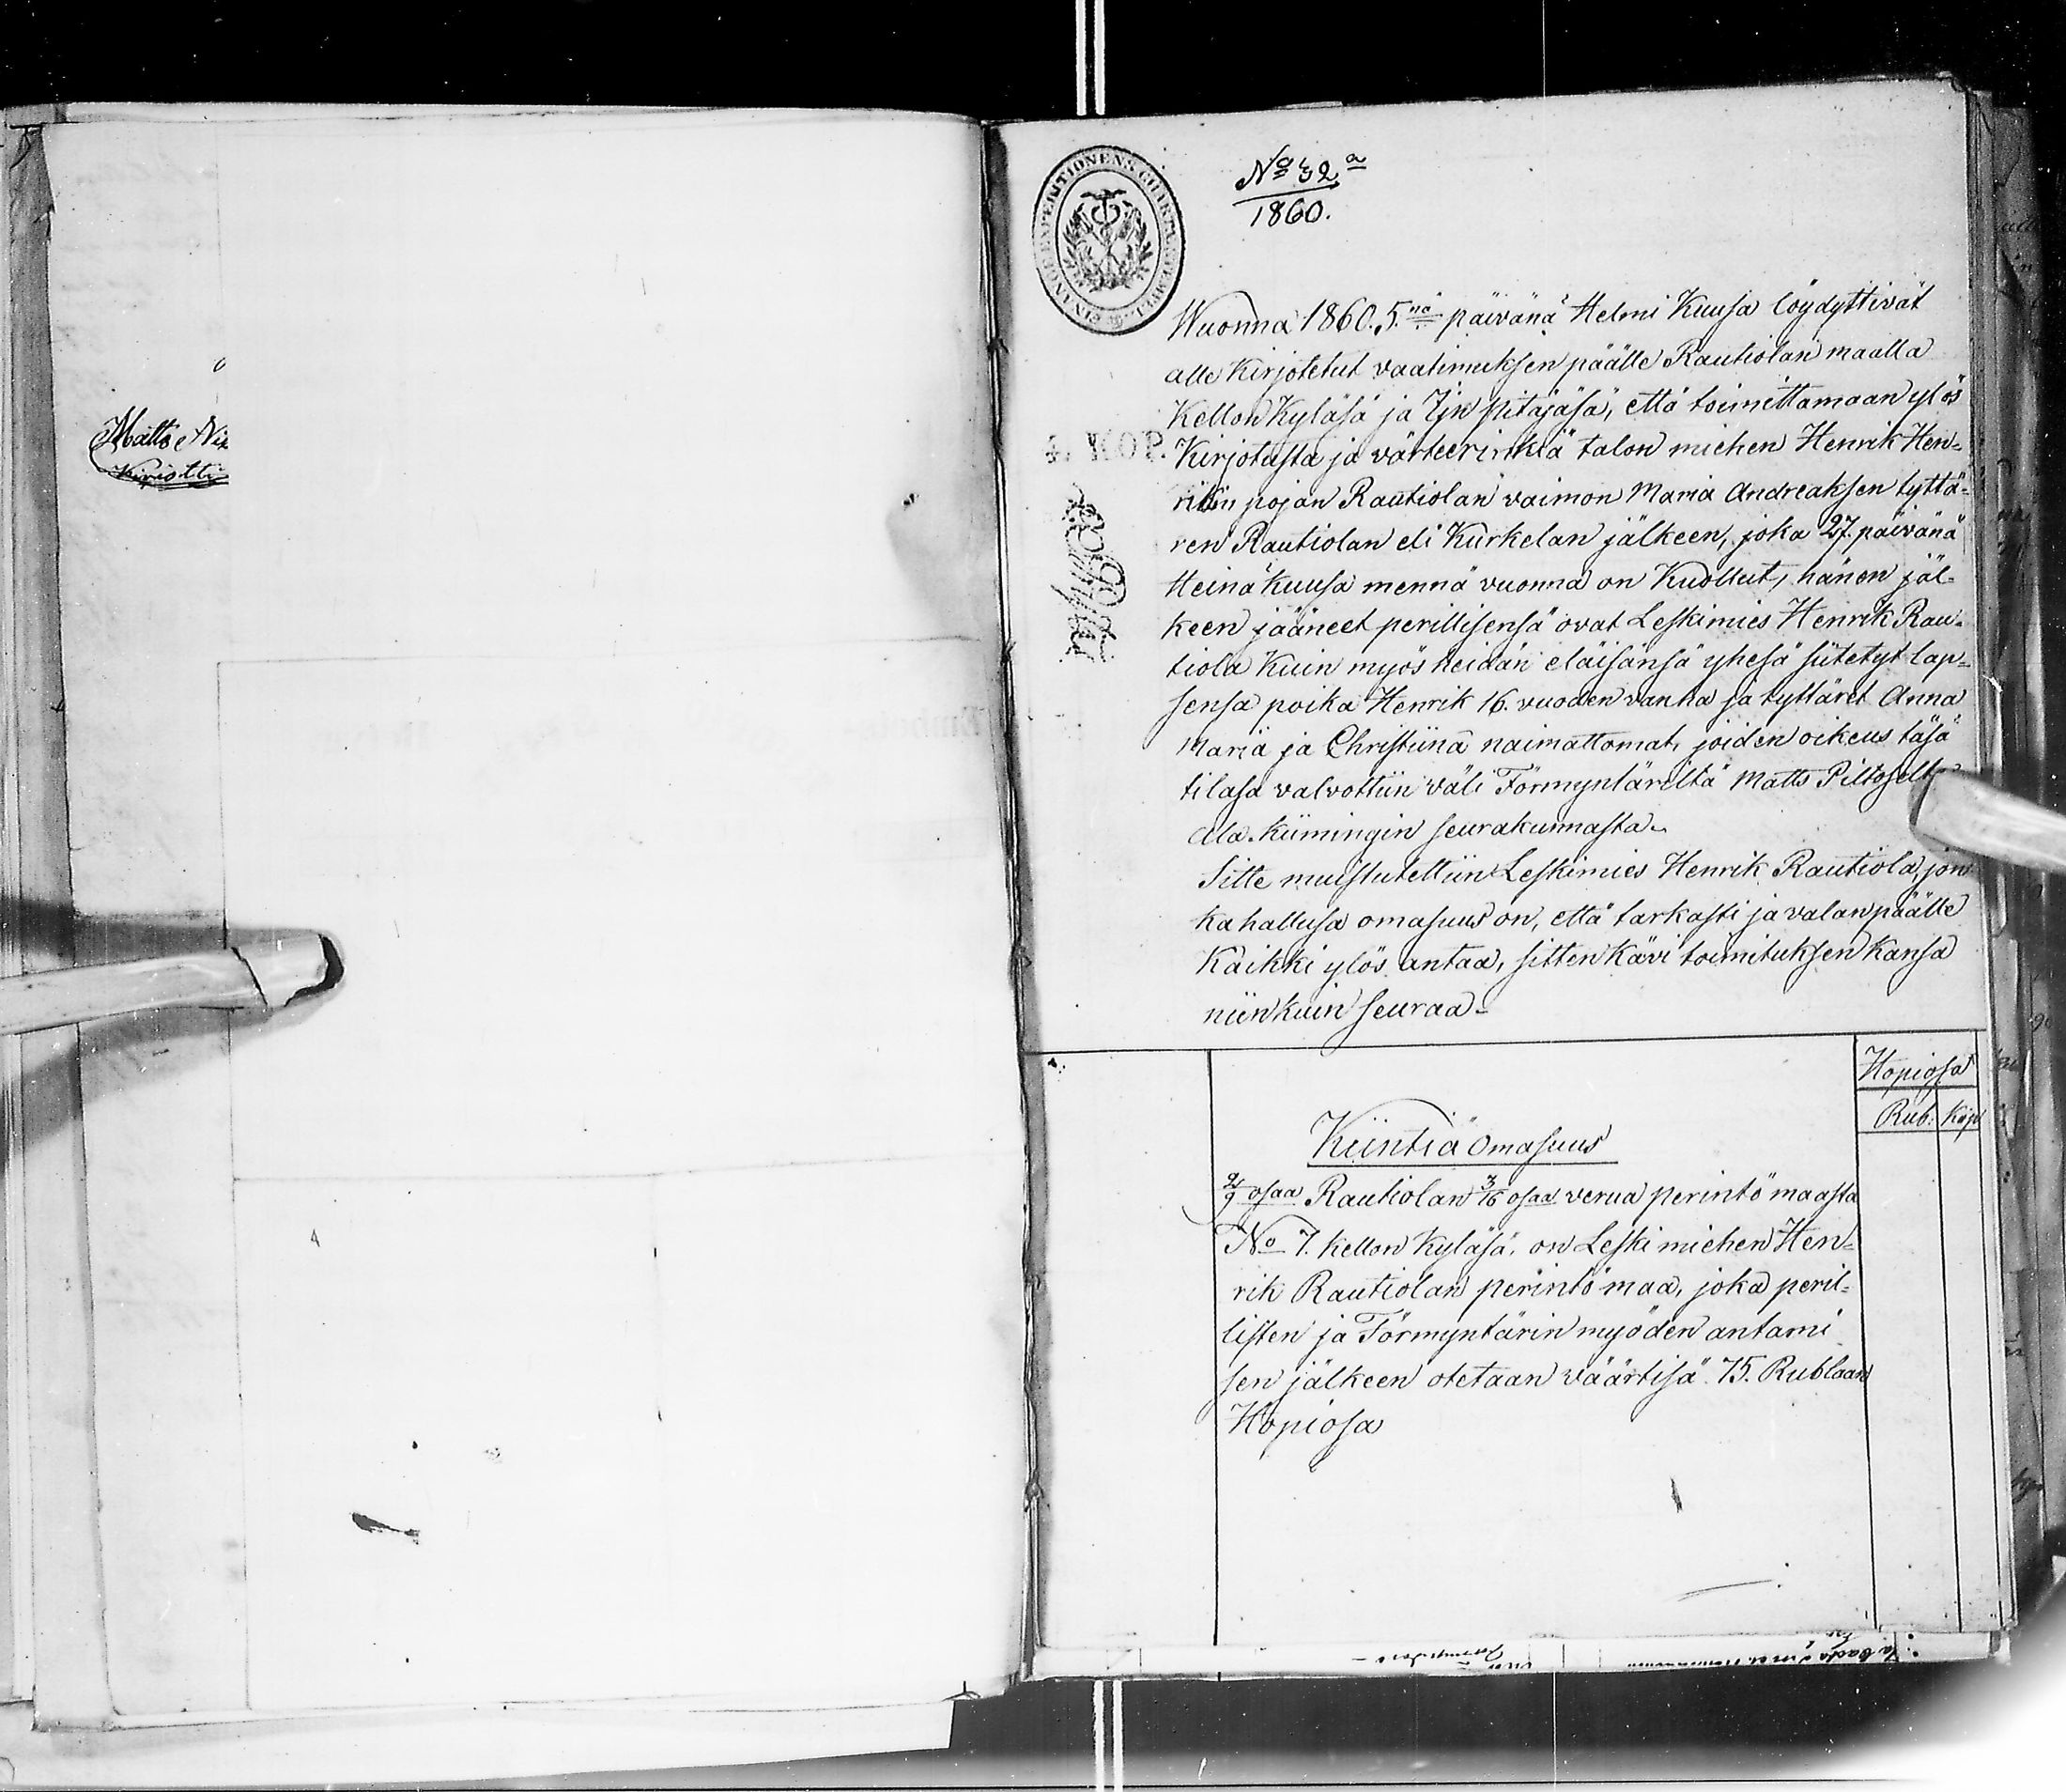 Matts Nix
Kipiotti
No 32a
1860.
4. KOP.
Wuonna 1860. 5.nä päivänä Helmi Kuusa löydyttivät
alle kirjotetut vaatimuksen päälle Rautiolan maalla
Kellon Kyläsä ja Ijn pitäjäsä, että toimittamaan ylös
Kirjotusta ja värteerinkiä talon miehen Henrik Hen-
rikin pojan Rautiolan vaimon Maria Andreaksen tyttä-
ren Rautiolan eli Kurkelan jälkeen, joka 27. päivänä
Heinä kuusa mennä vuonna on Kuollut, hänen jäl-
keen jääneet perillisensä ovat Leskimies Henrik Rau-
tiola Kuin myös heidän eläisänsä yhesä siitetyt lap-
sensa poika Henrik 16. vuoden vanha ja tyttäret Anna
Maria ja Christiina naimattomat, joiden oikeus täsä
tilasa valvottiin väli Förmyntäriltä Matts Piltoselta
Ala Kiimingin seurakunnasta.
Sitte muistutettiin Leskimies Henrik Rautiola, jon
ka hallusa omasuus on, että tarkasti ja valan päälle
Kaikki ylös antaa, sitten kävi toimituksen kansa
niin kuin seuraa-
Hopiosa
Rub: Kop
Kiintiä omasuus
2/9 osaa Rautiolan 3/16 osaa verua perintö maasta
No 7. Kellon Kyläsä, on Leski miehen Hen-
rik Rautiolan perintö maa, joka peril-
listen ja Förmyntärin myöden antami
sen jälkeen otetaan väärtisä 75. Rublaan
Hopiosa